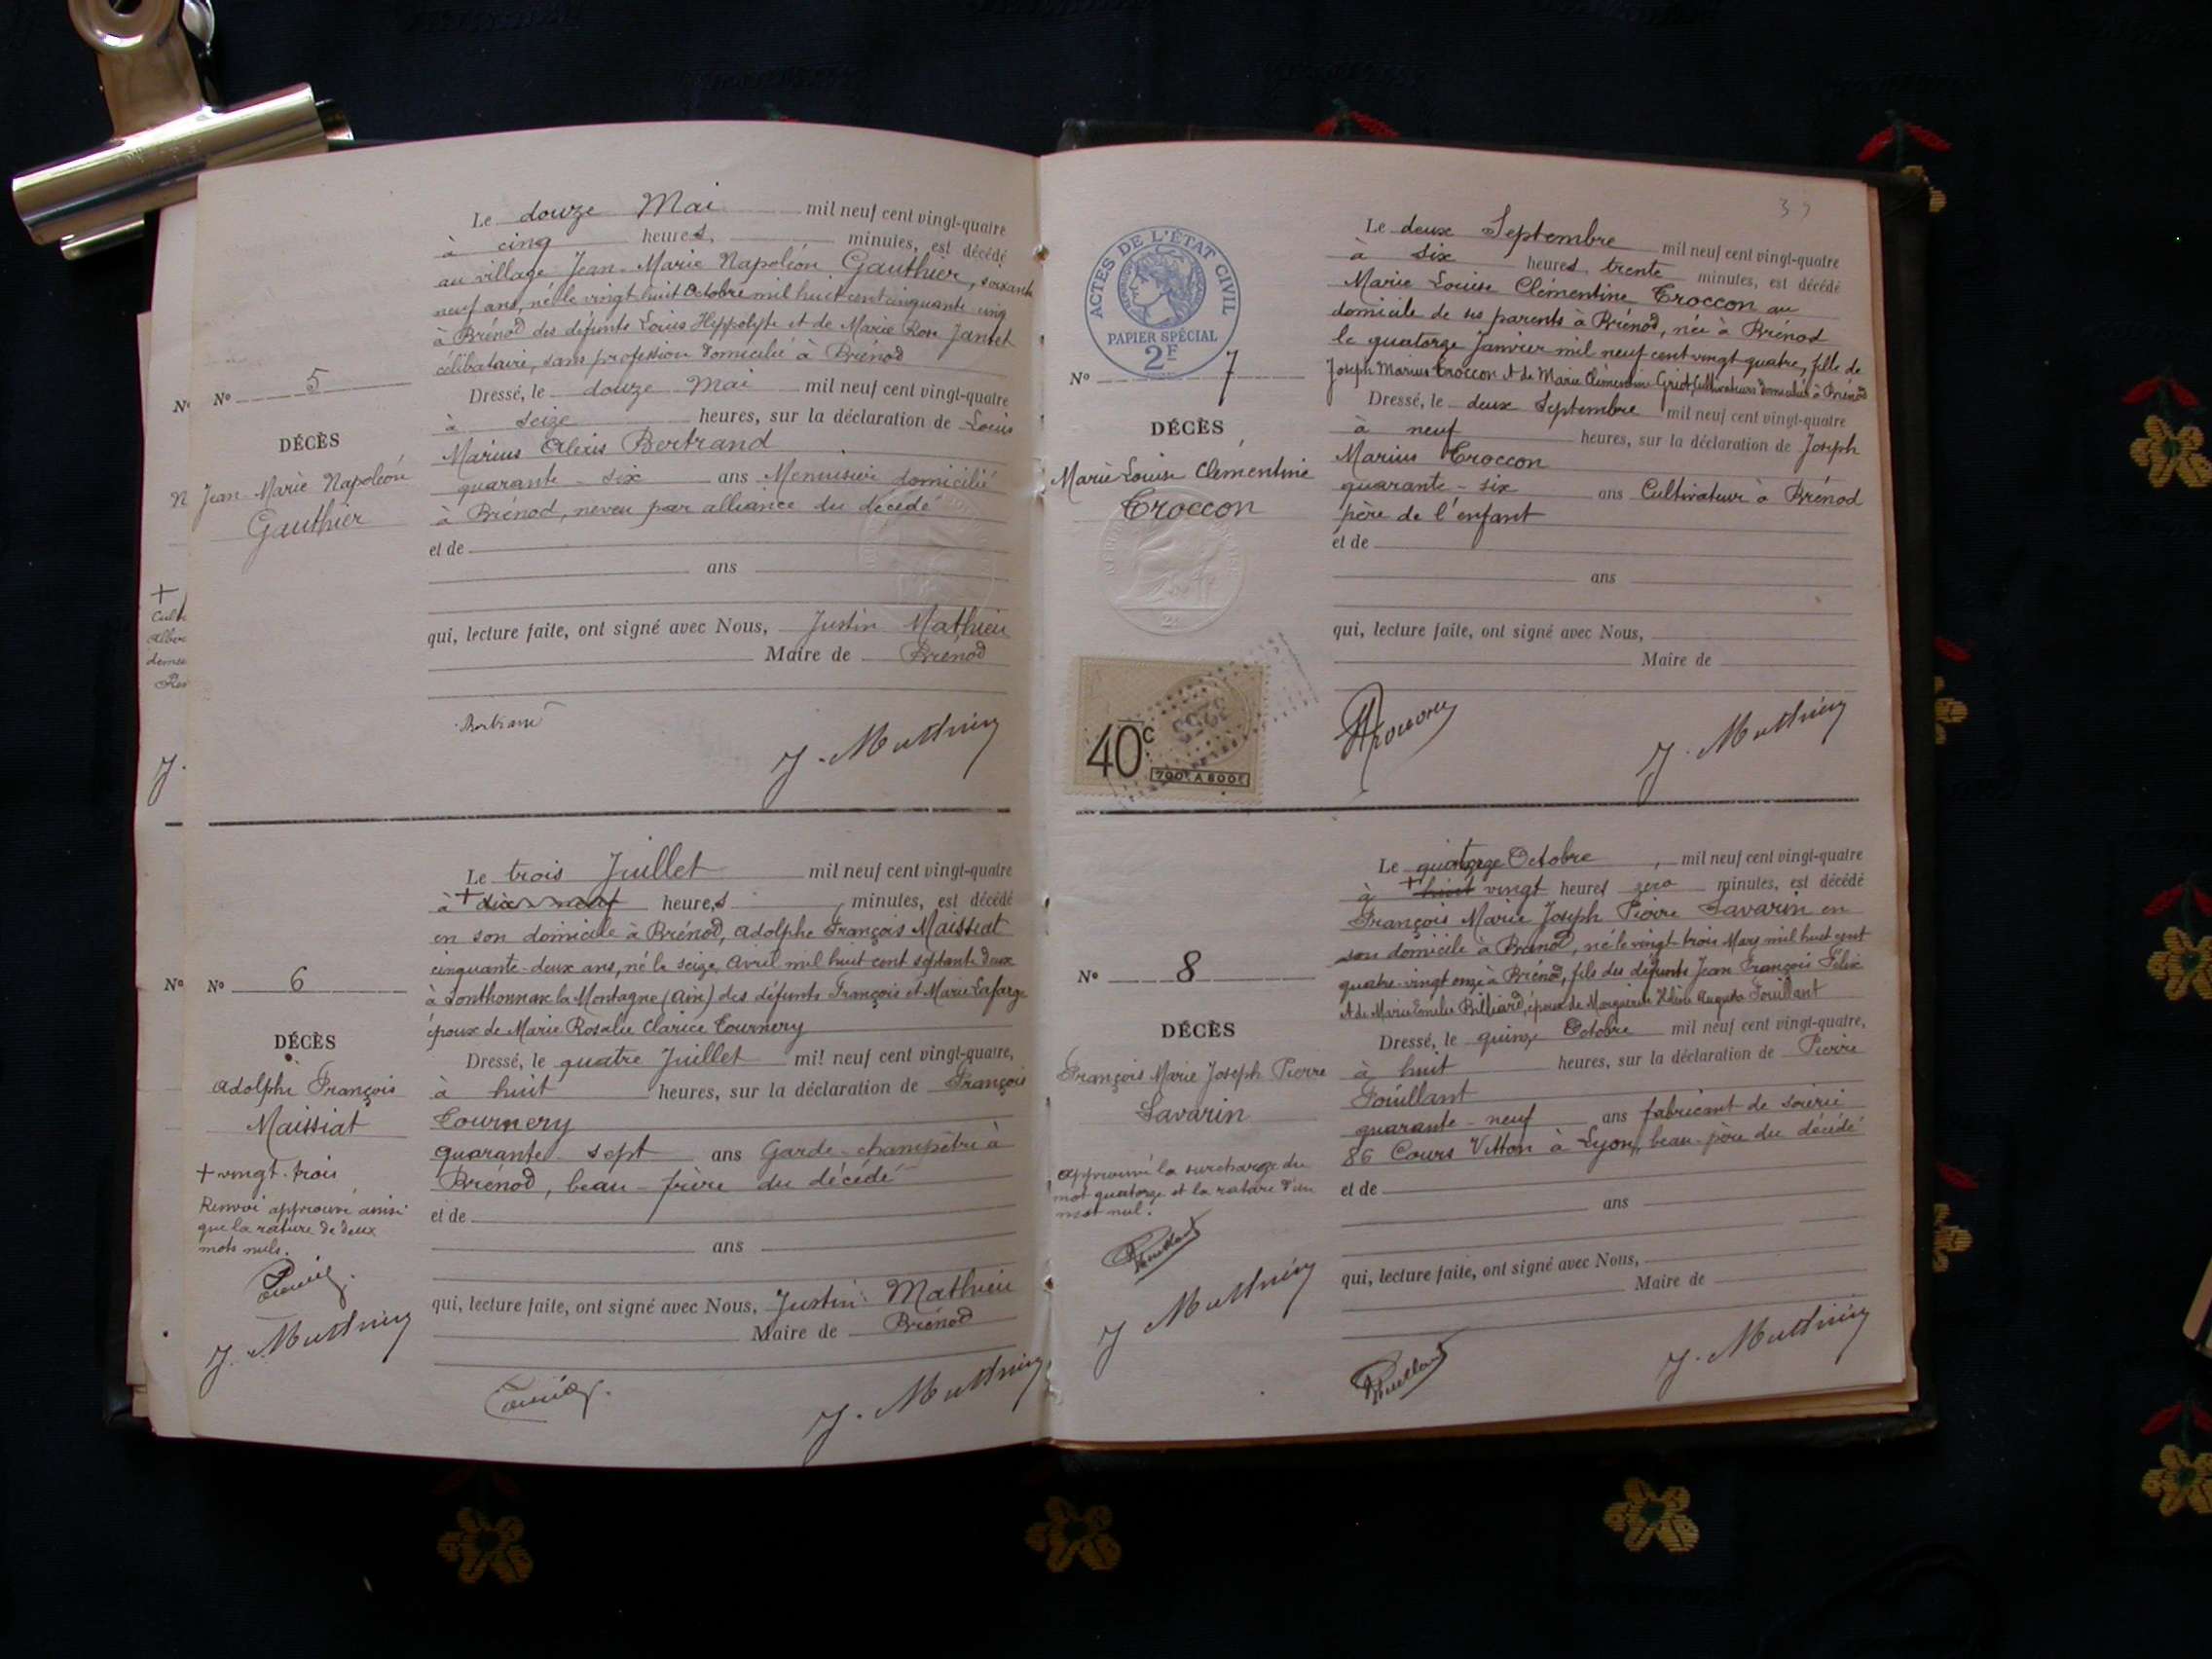 Le douze Mai mil neuf cent vingt-quatre
à cinq heures, minutes, est décédé
au village Jean-Marie Napoléon Gauthier, soixante
neuf ans, né le vingt huit Octobre mil huit cent cinquante cinq
à Brénod des défunts Louis Hippolyte et de Marie Rose Jantet
célibataire, sans profession domicilié à Brénod
No 5
DÉCÈS
Jean-Marie Napoléon
Gauthier
Dressé, le douze Mai mil neuf cent vingt-quatre
à seize heures, sur la déclaration de Louis
Marius Alexis Bertrand
quarante-six ans Menuisier domicilié
à Brénod, neveu par alliance du décédé
et de
ans
qui, lecture faite, ont signé avec Nous, Justin Mathieu
Maire de Brénod
Bertrand
J. Mathieu
Le trois Juillet mil neuf cent vingt-quatre
à + dix-neuf heures minutes, est décédé
en son domicile à Brénod, Adolphe François Maissiat
cinquante-deux ans, né le seize Avril mil huit cent septante deux
à Sonthonnax la Montagne (Ain) des défunts François et Marie Lafarge
époux de Marie Rosalie Clarice Tournery
No 6
DÉCÈS
Adolphe François
Maissiat
+ vingt-trois
Renvoi approuvé ainsi
que la rature de deux
mots nuls.
J. Mathieu
Dressé, le quatre Juillet mil neuf cent vingt-quatre,
à huit heures, sur la déclaration de François
Tournery
quarante-sept ans Garde-champêtre à
Brénod, beau-frère du décédé
et de
ans
qui, lecture faite, ont signé avec Nous, Justin Mathieu
Maire de Brénod
J. Mathieu
39
ACTES DE L'ÉTAT CIVIL
PAPIER SPÉCIAL
2F
Le deux Septembre mil neuf cent vingt-quatre
à six heures trente minutes, est décédé
Marie Louise Clémentine Troccon au
domicile de ses parents à Brénod, née à Brénod
le quatorze Janvier mil neuf cent vingt quatre, fille de
Joseph Marius Troccon et de Marie Clémentine Griot, Cultivateurs domiciliés à Brénod
No 7
DÉCÈS
Marie-Louise Clémentine
Troccon
Dressé, le deux Septembre mil neuf cent vingt-quatre
à neuf heures, sur la déclaration de Joseph
Marius Troccon
quarante-six ans Cultivateur à Brénod
père de l'enfant
et de
ans
qui, lecture faite, ont signé avec Nous,
Maire de
40c
700F A 800F
Troccon
J. Mathieu
Le quatorze Octobre mil neuf cent vingt-quatre
à + huit vingt heures zéro minutes, est décédé
François Marie Joseph Pierre Savarin en
son domicile à Brénod, né le vingt-trois Mars mil huit cent
quatre-vingt onze à Brénod, fils des défunts Jean François Félix
et de Marie Emélie Billiard, époux de Marguerite Hélène Augusta Fouillant
No 8
DÉCÈS
François Marie Joseph Pierre
Savarin
Approuvé la surcharge du
mot quatorze et la rature d'un
mot nul.
J Mathieu
Dressé, le quinze Octobre mil neuf cent vingt-quatre,
à huit heures, sur la déclaration de Pierre
Fouillant
quarante-neuf ans fabricant de soierie
86 Cours Vitton à Lyon, beau-père du décédé
et de
ans
qui, lecture faite, ont signé avec Nous,
Maire de
J. Mathieu